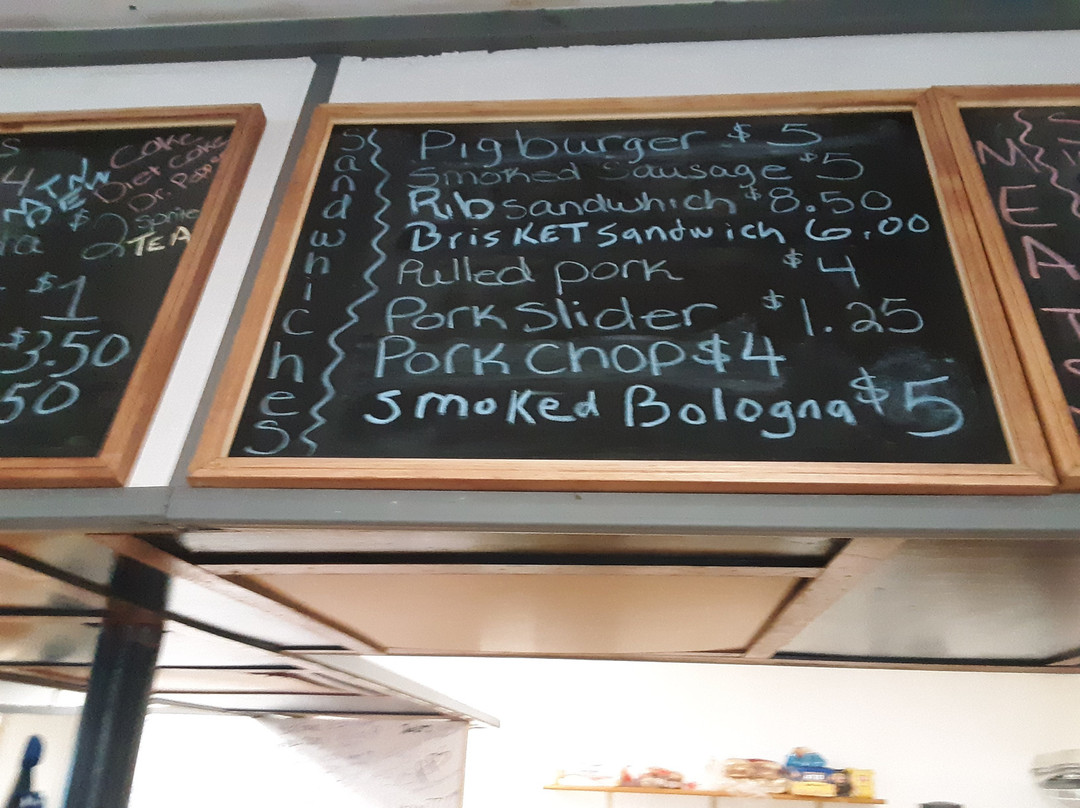 Coke
Diet Coke
Dr. Pepper
$2
TEA
$1
$3.50
50
Sandwhiches
Pigburger $5
Smoked Sausage $5
Rib sandwhich $8.50
BrisKET Sandwich 6.00
Pulled pork $4
Pork Slider $1.25
Pork Chop $4
Smoked Bologna $5
MEATS